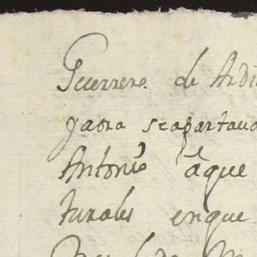 Guerrero de Ardi
gaora seapartaua
Antonio aque
turales enque